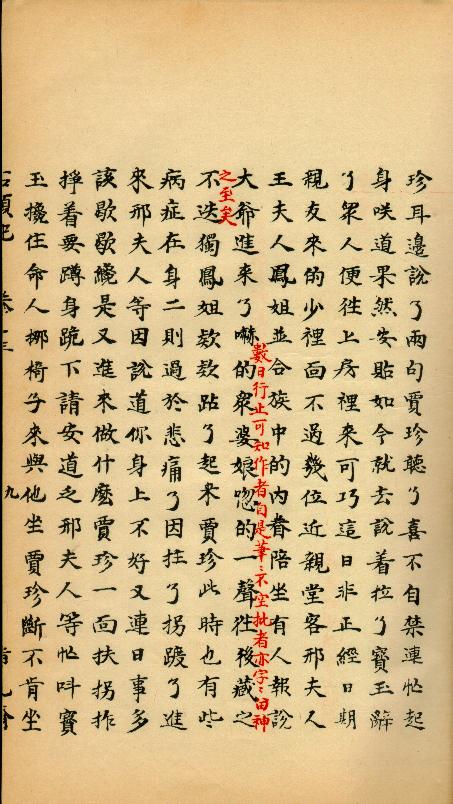 珍耳邊說了兩句賈珍聽了喜不自禁連忙起
身咲道果然安貼如今就去說着拉了寶玉辭
了衆人便徃上房裡來可巧這日非正經日期
親友來的少裡面不過幾位近親堂客邢夫人
王夫人鳳姐並合族中的内眷陪坐有人報說
數日行止可知作者自是筆〻不空批者亦字〻留神
之至矣
大爺進來了嚇的衆婆娘唿的一聲徃後藏之
不迭獨鳳姐欵欵跕了起来賈珍此時也有些
病症在身二則過於悲痛了因拄了拐踱了進
來邢夫人等因說道你身上不好又連日事多
該歇歇纔是又進來做什麽賈珍一面扶拐拃
掙着要蹲身跪下請安道乏邢夫人等忙呌寳
玉攙住命人挪椅子來與他坐賈珍斷不肯坐
九